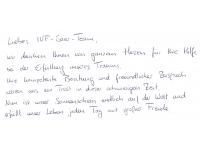 Liebes IVF-Saar-Team,
wir danken Ihnen von ganzem Herzen für Ihre Hilfe
bei der Erfüllung unseres Traums.
Ihre kompetente Beratung und freundlicher Zuspruch
waren uns ein Trost in dieser schwierigen Zeit.
Nun ist unser Sonnenschein endlich auf der Welt und
erfüllt unser Leben jeden Tag mit großer Freude